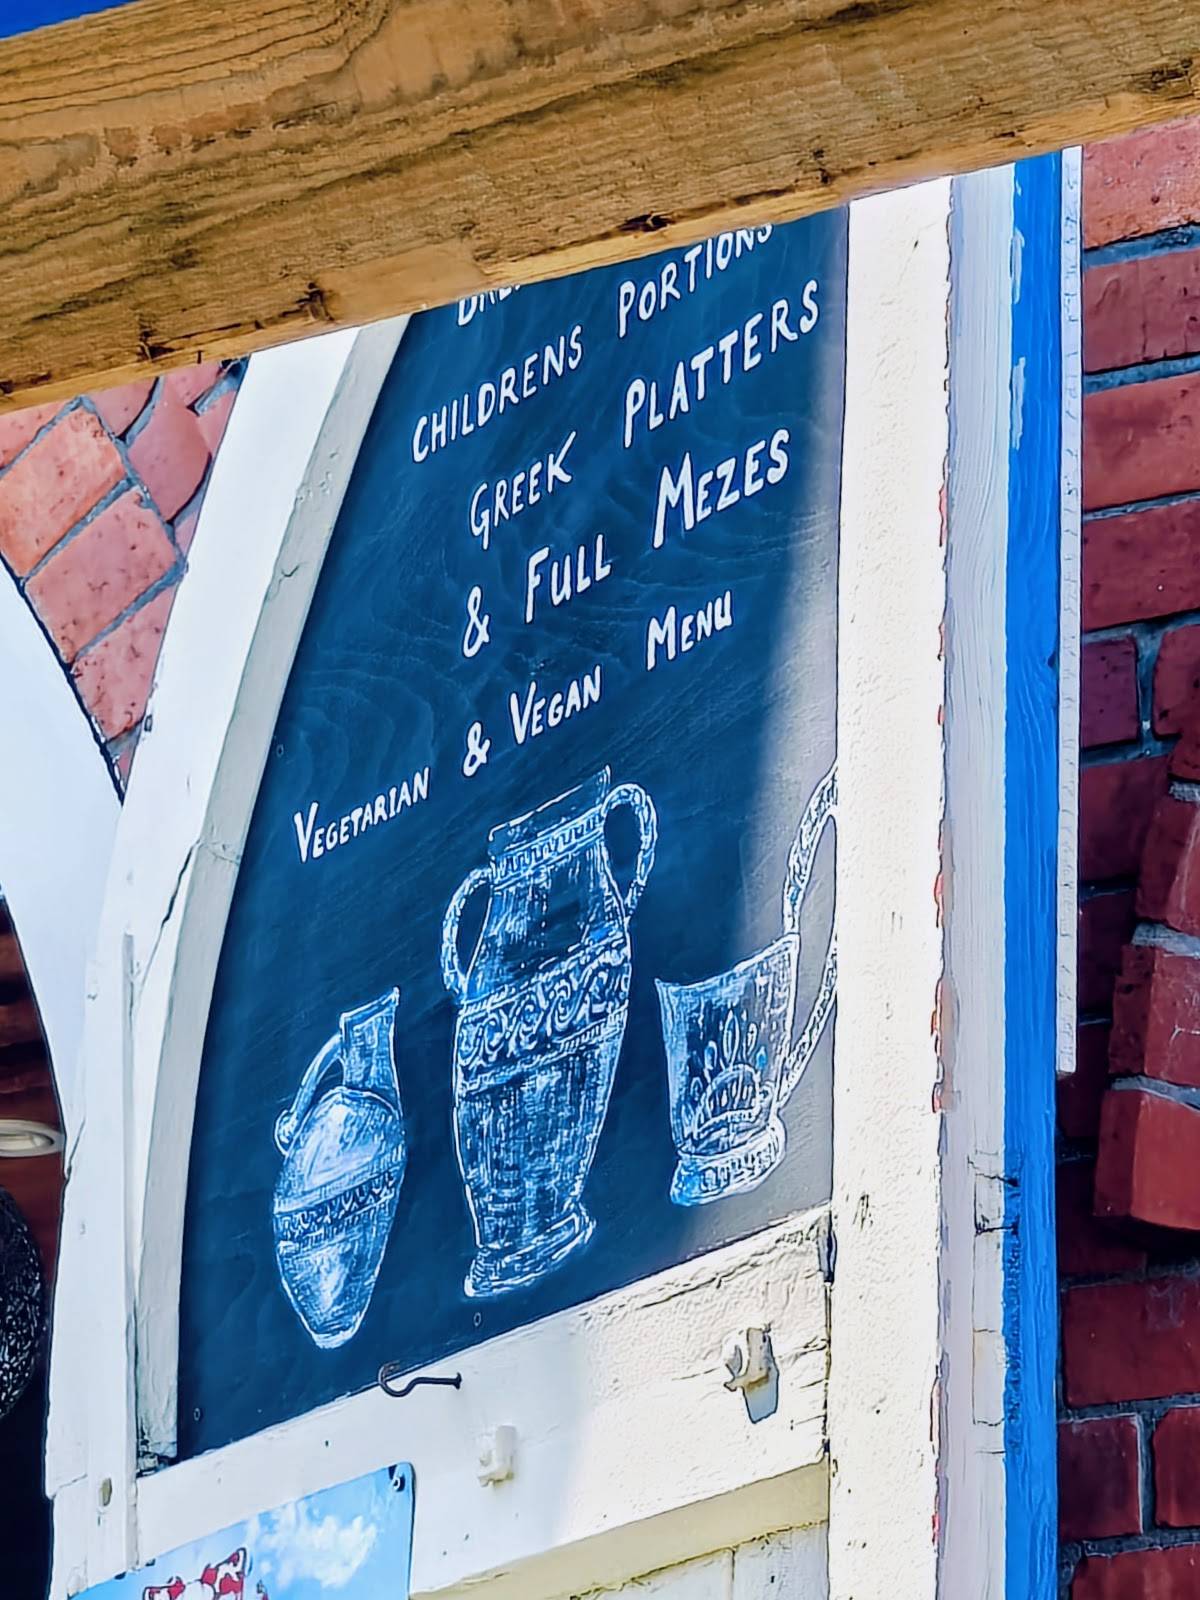 CHILDRENS PORTIONS
GREEK PLATTERS
& FULL MEZES
VEGETARIAN & VEGAN MENU